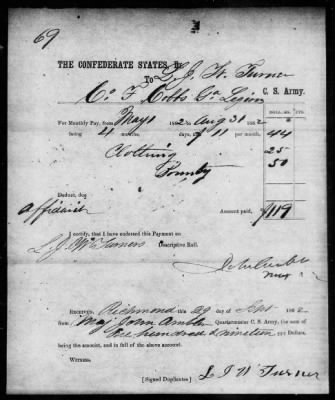 69
THE CONFEDERATE STATES, Dr.
To L. J. W. Turner
Co F Cobbs Ga Legion C. S. Army.
DOLLS. CTS.
For Monthly Pay, from May 1 1862 to Aug 31 1862
being 4 months, days, @ 11 per month, 44
Clothing 25
Bounty 50
Deduct, due
Affidavit Amount paid, $119
I certify, that I have endorsed this Payment on
L. J. W. Turners Descriptive Roll.
RECEIVED, Richmond this 29 day of 1862
from Maj John Quartermaster C. S. Army, the sum of
One hundred & nineteen Dollars,
being the amount, and in full of the above account.
Witness.
L J W Turner
[Signed Duplicates]